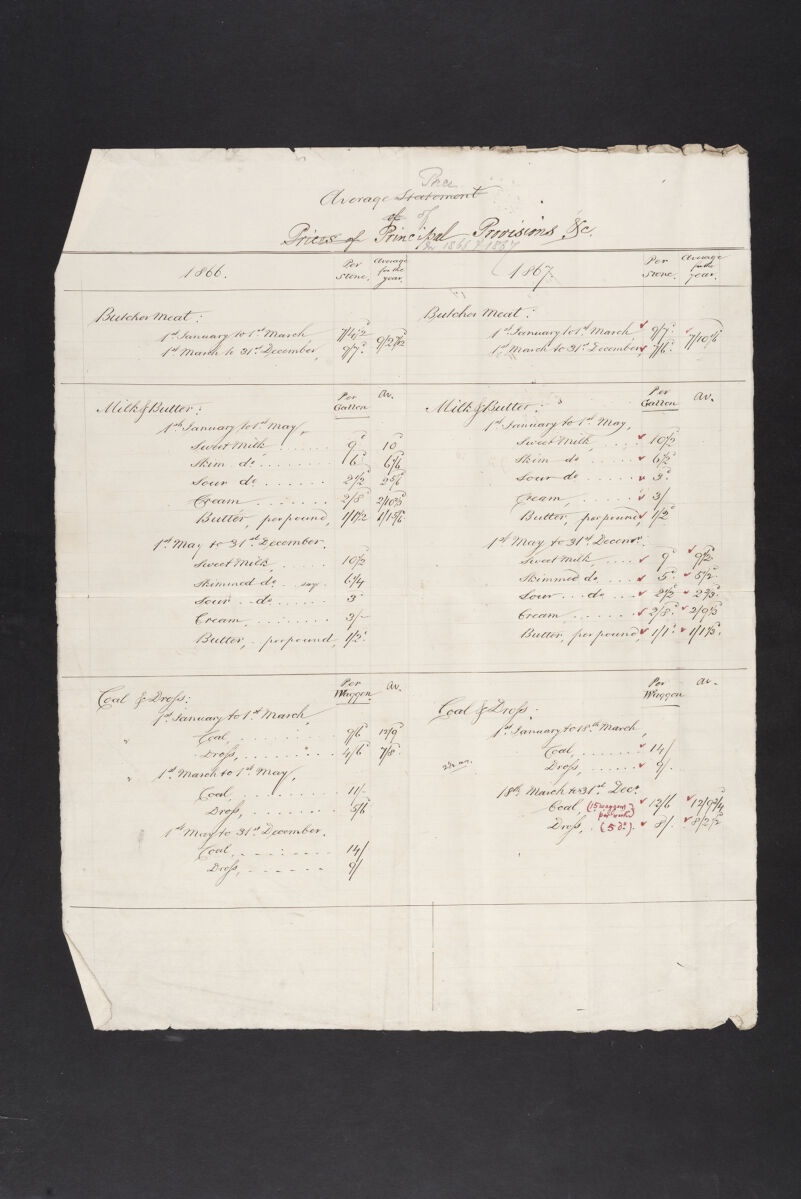 Average Statement Price
of of
Prices of Principal Provisions &c.
for 1866 & 1867
1866. Per Stone. Average for the year.
Butcher Meat:
1st January to 1st March, 7/4½
1st March to 31st December, 9/7.
Milk & Butter: Per Gallon Av.
1st January to 1st May,
Sweet Milk 9d 10
Skim do 6d
Sour do 2½d
Cream 2/8
Butter, per pound, 1/1½
1st May to 31st December.
Sweet Milk 10½
Skimmed do. say. 6¼
Sour do 3d
Cream 3/-
Butter, per pound, 1/2d
Coal & Dross: Per Waggon Av.
1st January to 1st March,
Coal, 9/6 12/9
Dross, 4/6 7/8
1st March to 1st May,
Coal, 11/-
Dross, 5/6
1st May to 31st December.
Coal, 14/
Dross, 9/
1867. Per Stone. Average for the year.
Butcher Meat:
1st January to 1st March 9/7d
1st March to 31st December 7/6d
Milk & Butter: Per Gallon Av.
1st January to 1st May,
Sweet Milk, 10½
Skim do 6½
Sour do 3d
Cream, 3/
Butter, per pound 1/2d
1st May to 31st Decemr.
Sweet Milk, 9d 9½
Skimmed do 5d 5½
Sour do 2½
Cream, 2/8d
Butter, per pound 1/1d
Coal & Dross: Per Waggon Av.
1st January to 18th March,
Coal 14/
Dross, 9/.
18th March to 31st Decr.
Coal, (15 waggons per week) 12/6 12/9¾
Dross, (5 do). 8/. 8/2½